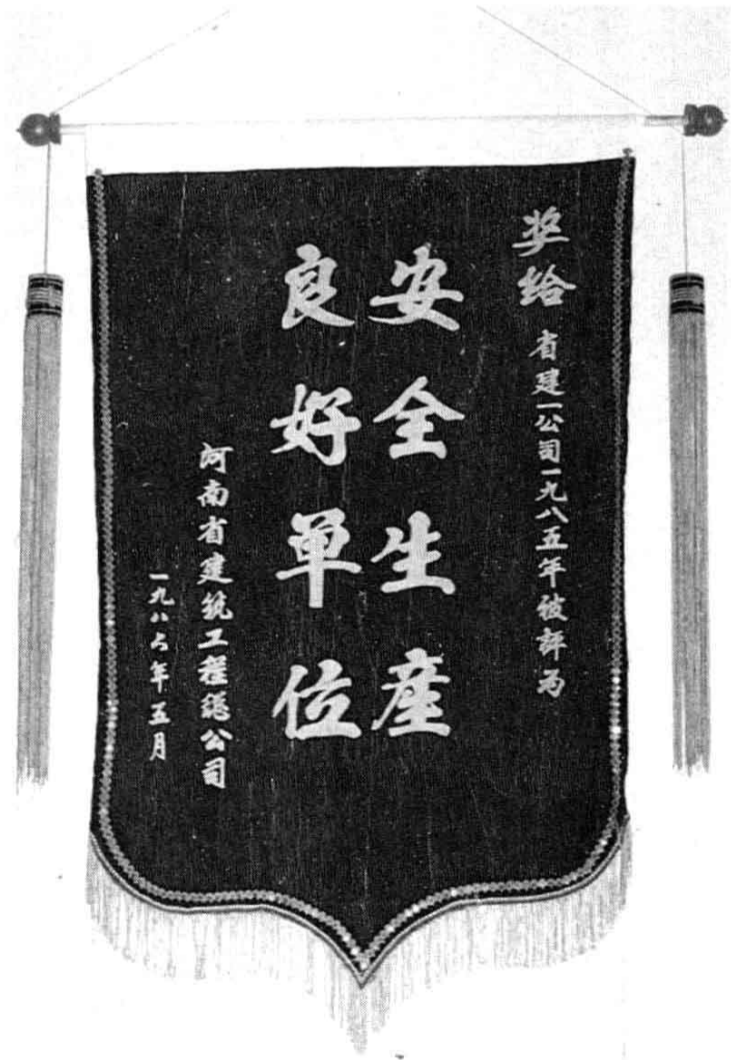 奖给 省建一公司一九八五年被评为
安全生産
良好单位
河南省建筑工程总公司
一九八六年五月